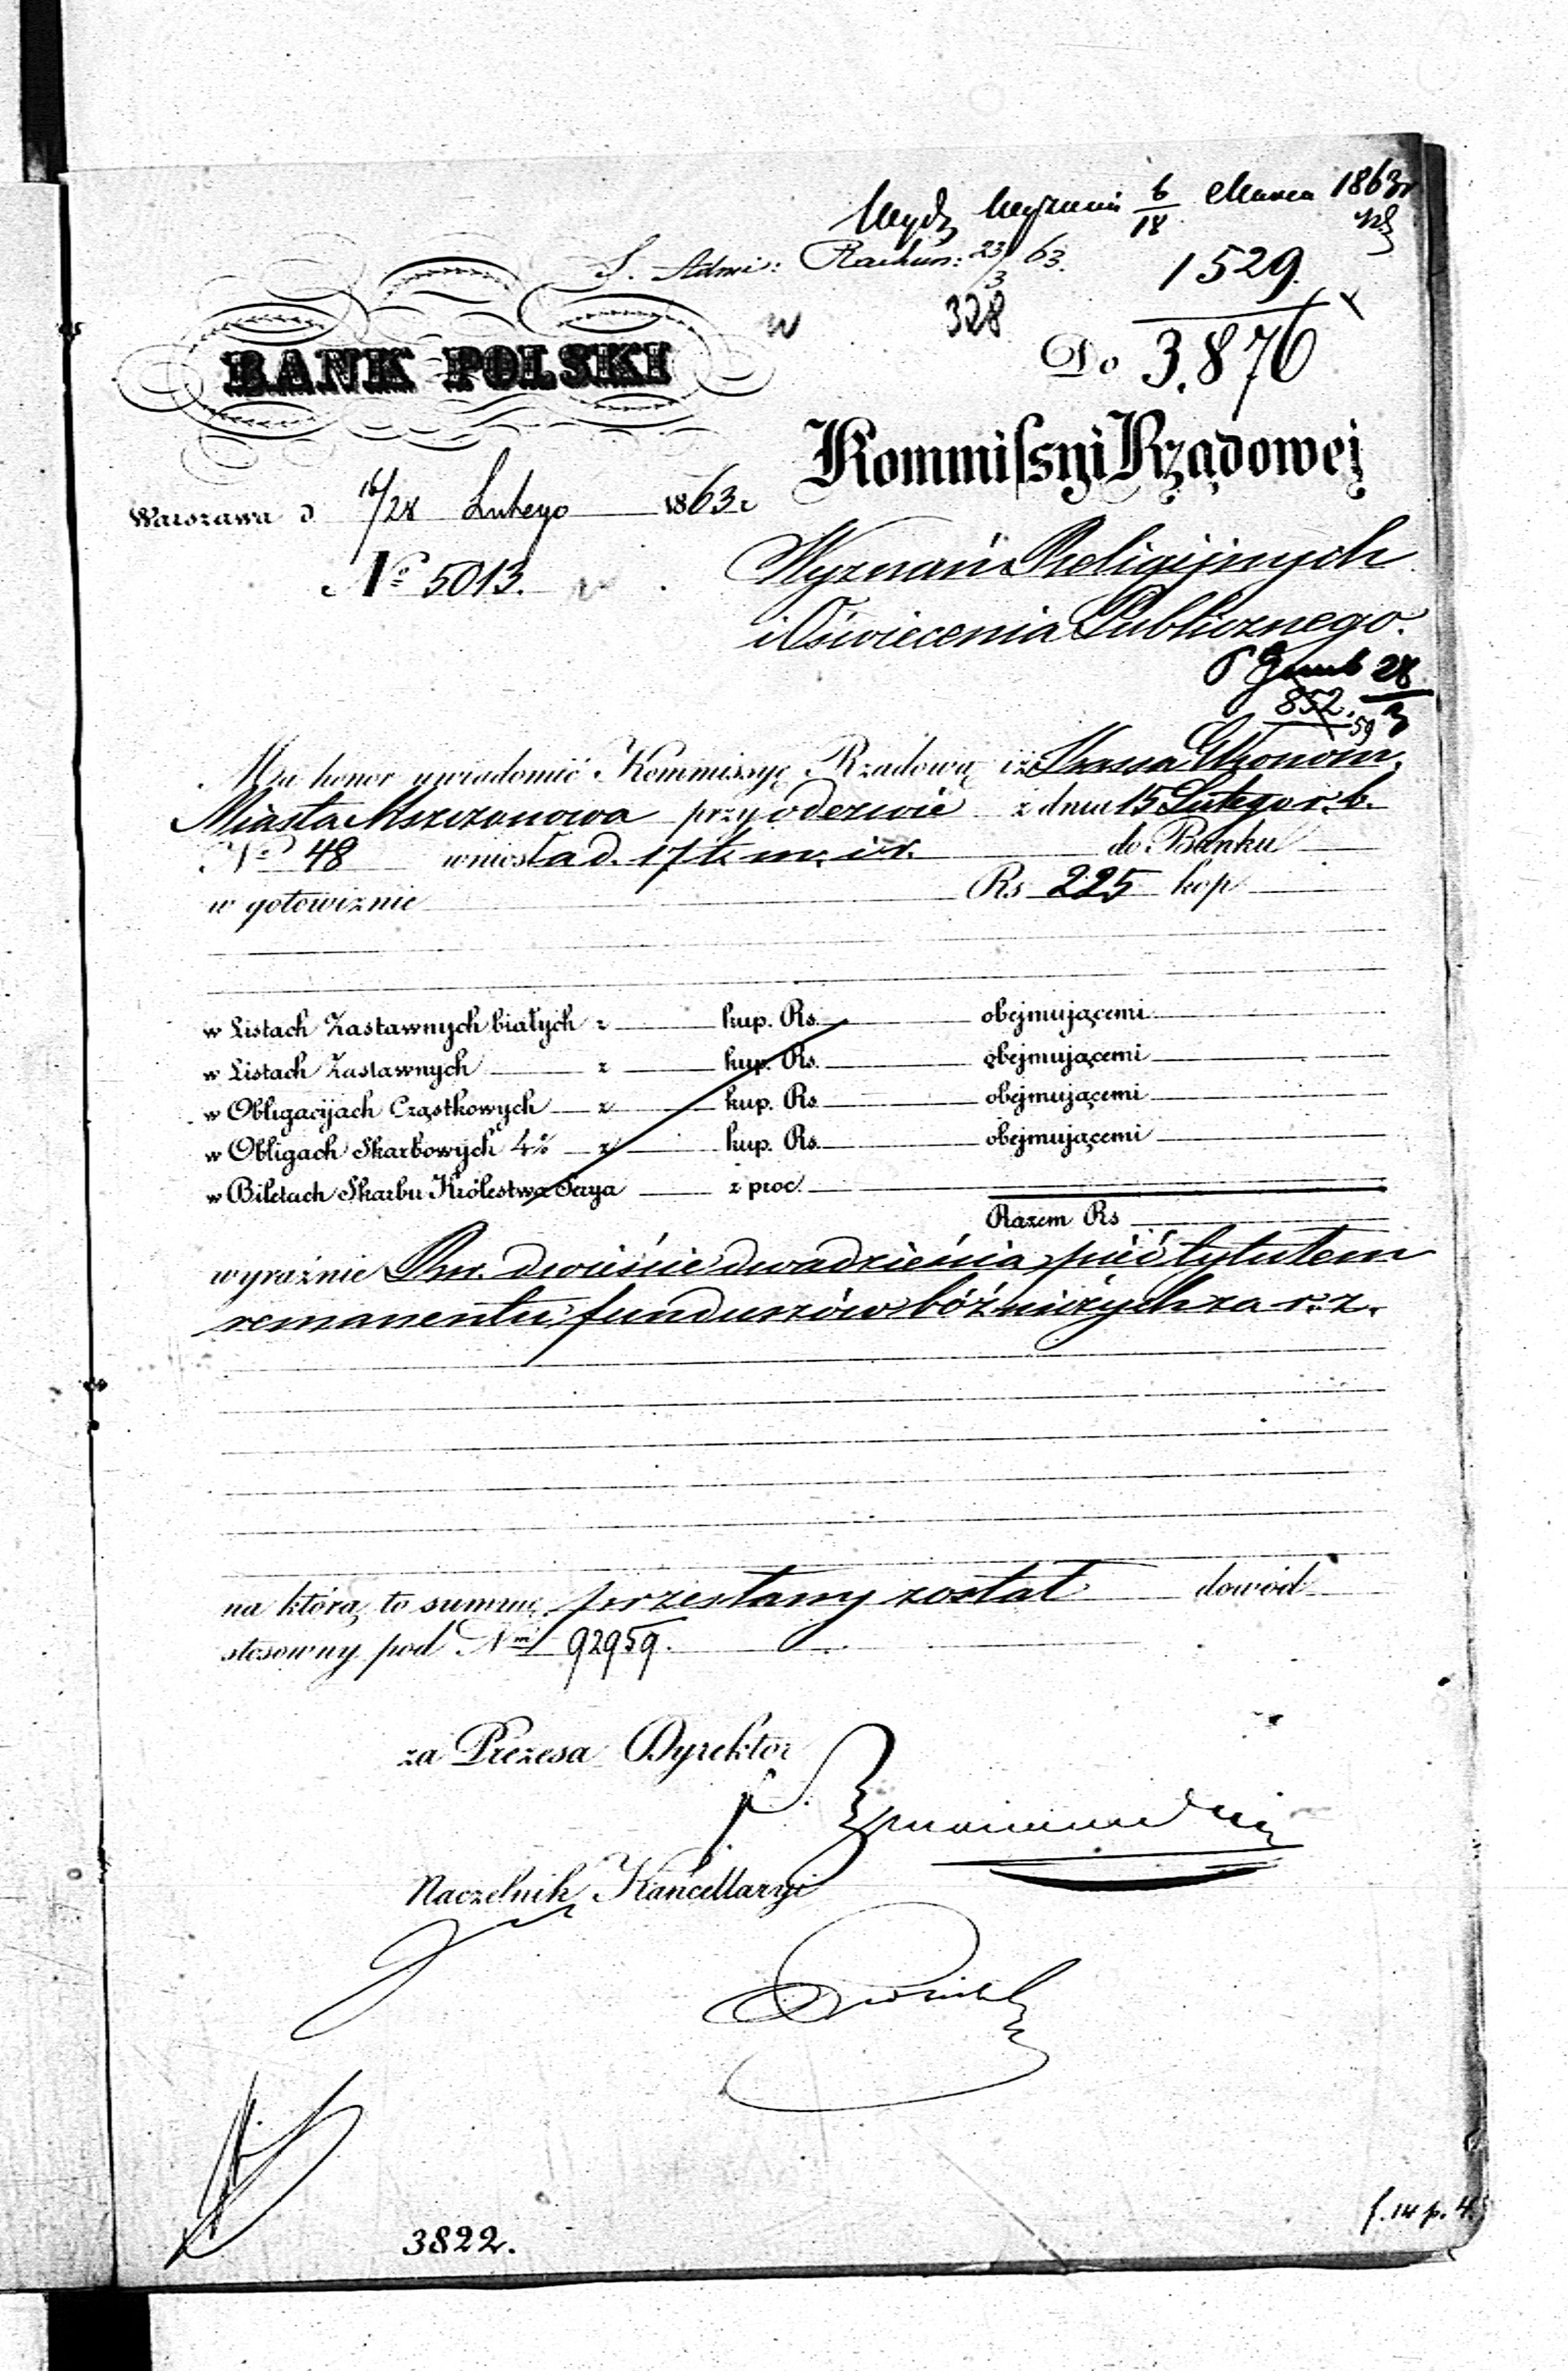 Wydz Wyznań 6/18 Marca 1863r
S. Admi: Rachun: 23/3 63.
1529.
328
BANK POLSKI
Do 3.876
Kommissyi Rządowej
Warszawa d 16/28 Lutego 1863r
Wyznań Religijnych
No 5013.
i Oświecenia Publicznego.
28/3
852.
59
Ma honor uwiadomić Kommissyę Rządową iż Kassa Ekonom.
Miasta Mszczonowa przy odezwie z dnia 15 Lutego r. b.
No 48 wniosła d. 17 t. m. i r. do Banku
w gotowiznie Rs 225 kop.
w Listach Zastawnych białych z kup. Rs. obejmującemi
w Listach Zastawnych z kup. Rs. obejmującemi
w Obligacyjach Cząstkowych z kup. Rs obejmującemi
w Obligach Skarbowych 4% z kup. Rs. obejmującemi
w Biletach Skarbu Królestwa Serya z proc.
Razem Rs
wyraźnie Rsr. dwieście dwadzieścia pięć tytułem
remanentu funduszów bóżniczych za r. z.
na którą to summę przesłany został dowód
stosowny pod Nm 92959.
za Prezesa Dyrektor
Naczelnik Kancellaryi
3822.
f. 14 p. 4.